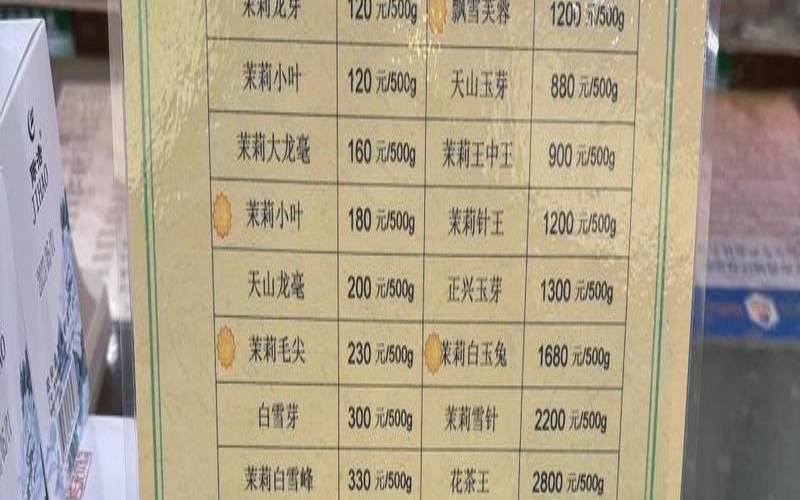 茉莉龙芽 120 元/500g 飘雪芙蓉 1200 元/500g
茉莉小叶 120 元/500g 天山玉芽 880 元/500g
茉莉大龙毫 160 元/500g 茉莉王中王 900 元/500g
茉莉小叶 180 元/500g 茉莉针王 1200 元/500g
天山龙毫 200 元/500g 正兴玉芽 1300 元/500g
茉莉毛尖 230 元/500g 茉莉白玉兔 1680 元/500g
白雪芽 300 元/500g 茉莉雪针 2200 元/500g
茉莉白雪峰 330 元/500g 花茶王 2800 元/500g